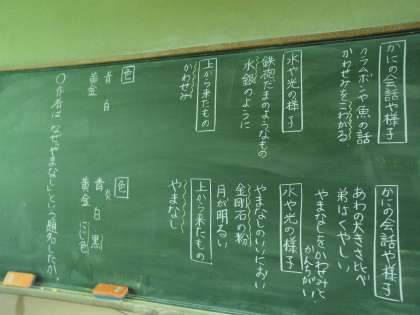 かにの会話や様子
クラムボンや魚の話
かわせみをこわがる
水や光の様子
鉄砲だまのようなもの
水銀のように
上から来たもの
かわせみ
色
青 白
黄金
かにの会話や様子
あわの大きさ比べ
弟はくやしい
やまなしをかわせみと
かんちがい
水や光の様子
やまなしのいいにおい
金剛石の粉
月が明るい
上から来たもの
やまなし
色
青 白 黒
黄金
○作者は、なぜ「やまなし」という題名したか。